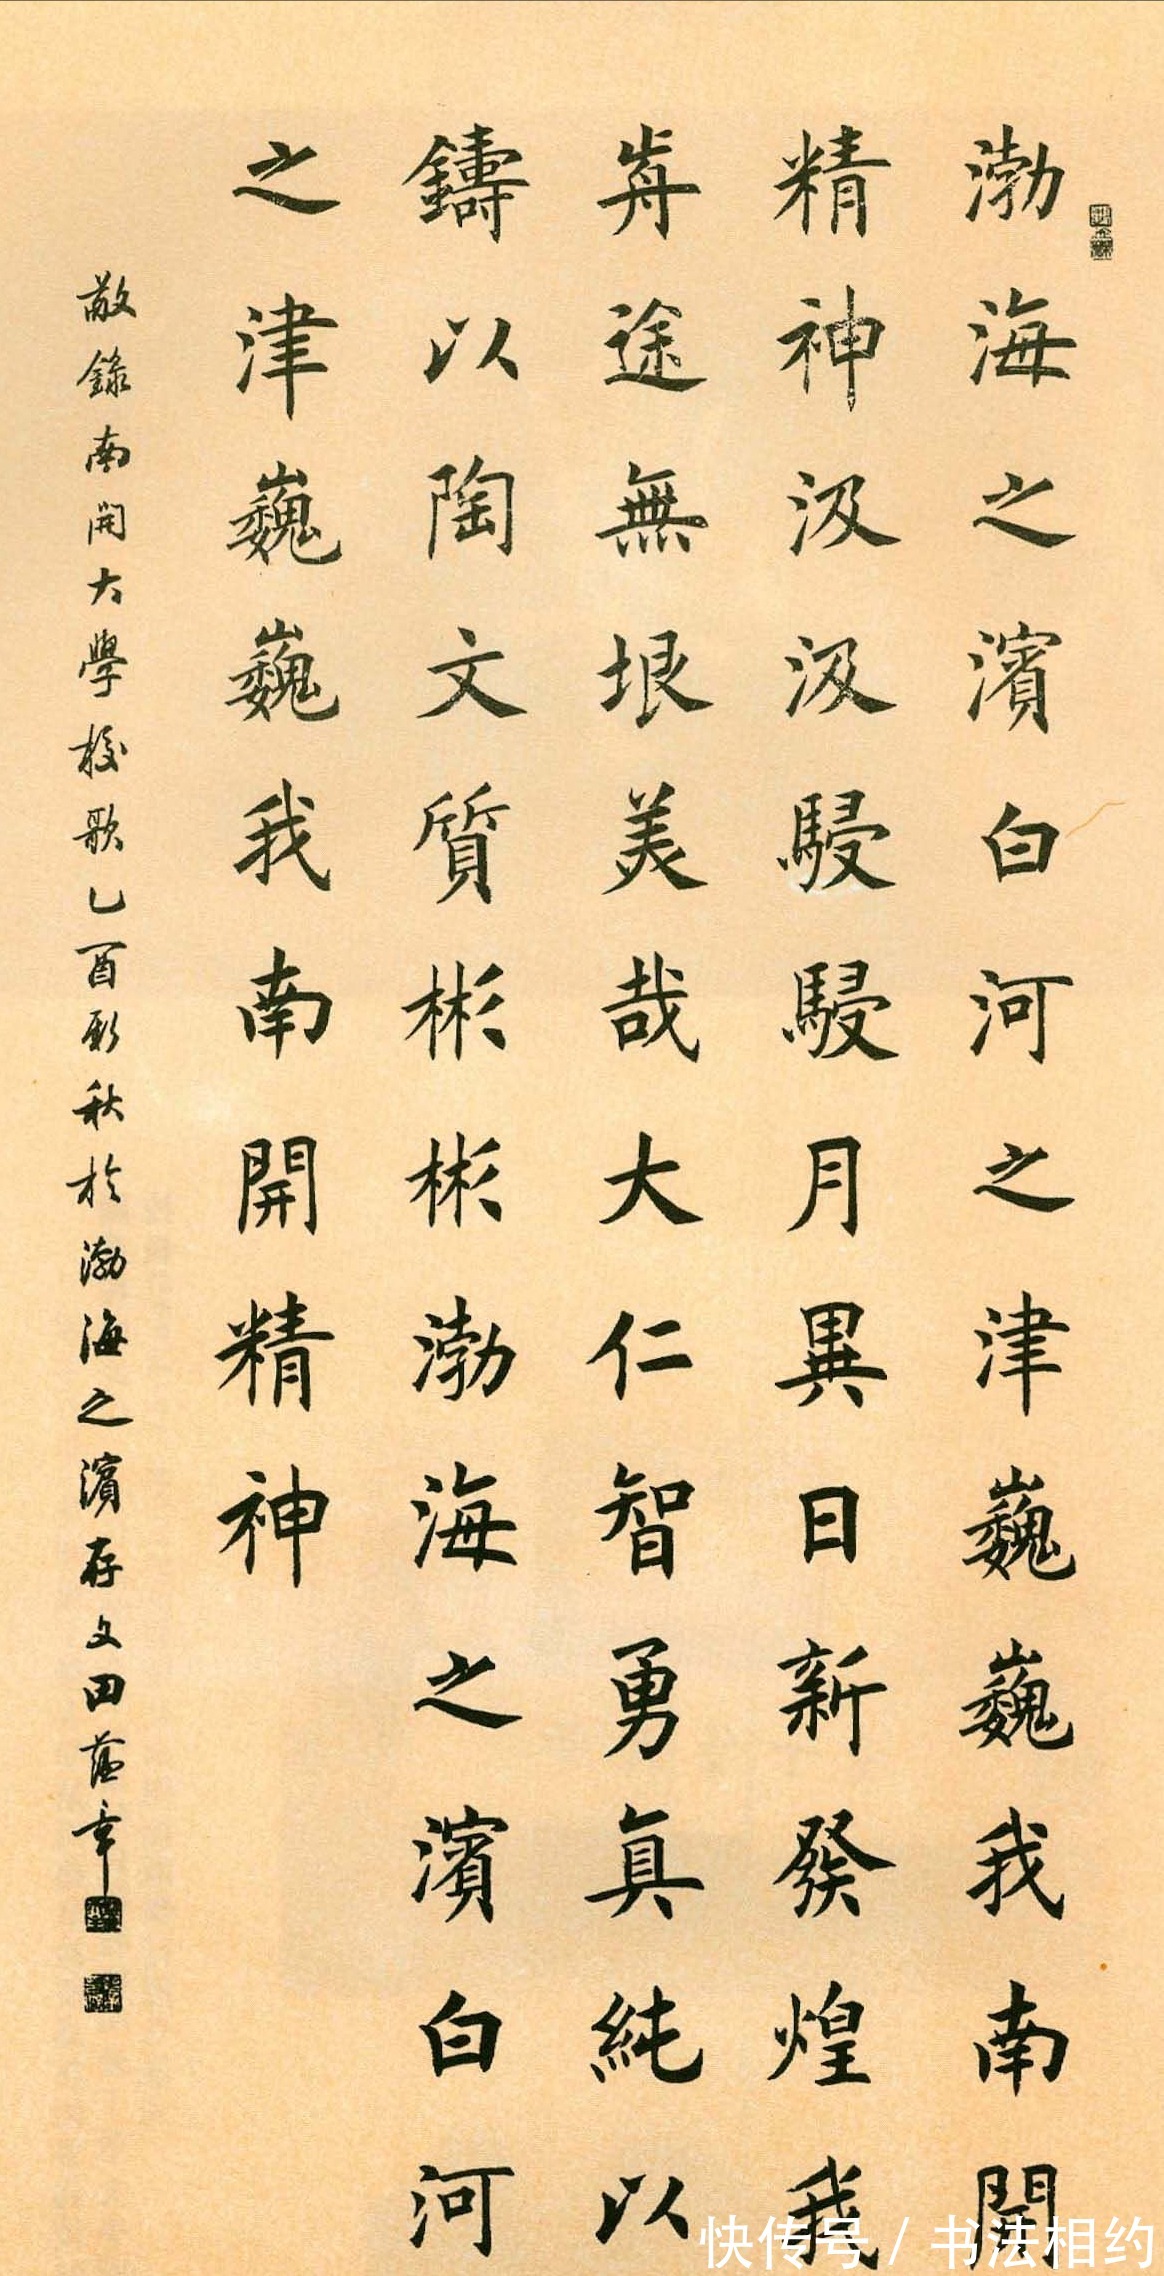 渤海之濱白河之津巍巍我南開
精神汲汲駸駸月異日新發煌我
歬途無垠美哉大仁智勇真純以
鑄以陶文質彬彬渤海之濱白河
之津巍巍我南開精神
敬錄南開大學校歌乙酉新秋於渤海之濱存文田蘊章
快传号 / 书法相约